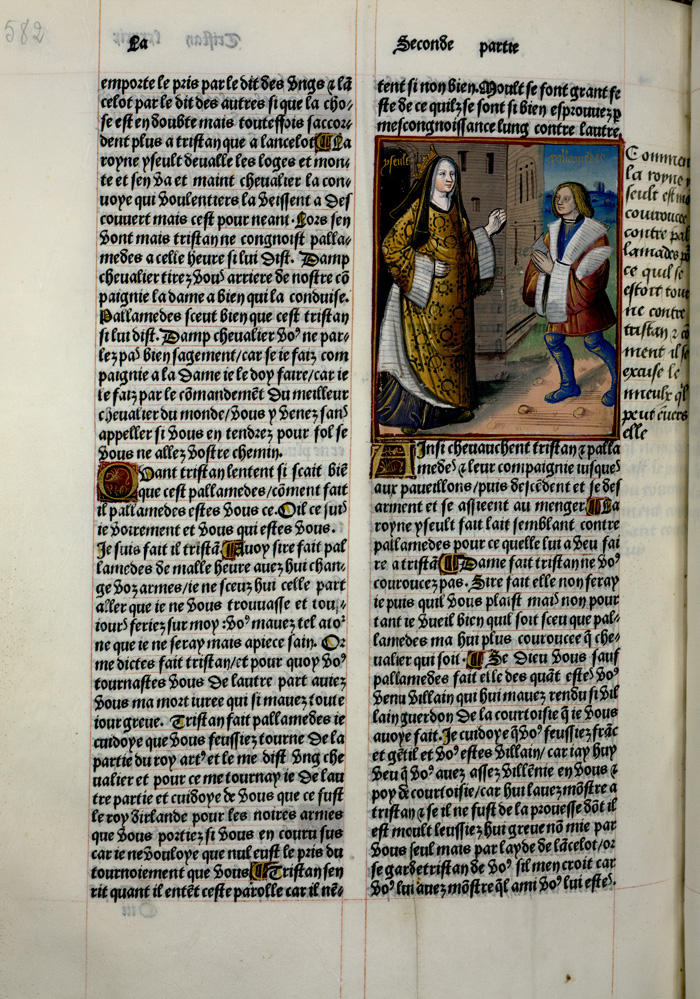 582
La
Seconde partie
emporte le pris par le dit des vngs ⁊ lã
celot par le dit des autres si que la cho-
se est en doubte mais touteffois saccor-
dent plus a tristan que a lancelot La
royne yseult deualle les loges et mon-
te et sen va et maint cheualier la con-
uoye qui voulentiers la veissent a des
couuert mais cest pour neant. Lors sen
vont mais tristan ne congnoist palla-
medes a celle heure si lui dist. Damp
cheualier tirez vous arriere de nostre cõ
paignie la dame a bien qui la conduise.
Pallamedes sceut bien que cest tristan
si lui dist. Damp cheualier voꝰ ne par-
lez pas bien sagement/car se ie faiz com
paignie a la dame ie le doy faire/car ie
le faiz par le cõmandemẽt du meilleur
cheualier du monde/vous y venez sans
appeller si vous en tendrez pour fol se
vous ne allez vostre chemin.
Quant tristan lentent si scait biẽ
que cest pallamedes/cõment fait
il pallamedes estes vous ce. Oil ce suis
ie voirement et vous qui estes vous.
Je suis fait il tristã. Auoy sire fait pal
lamedes de malle heure auez hui chan-
ge voz armes/ie ne sceuz hui celle part
aller que ie ne vous trouuasse et touj-
iours feriez sur moy :voꝰ mauez tel atoꝛ
ne que ie ne seray mais apiece sain. Or
me dictes fait tristan/et pour quoy voꝰ
tournastes vous de lautre part auiez
vous ma mort iuree qui si mauez toute
iour greue. Tristan fait pallamedes ie
cuidoye que vous feussiez tourne de la
partie du roy artꝰ et le me dist vng che
ualier et pour ce me tournay ie de lau
tre partie et cuidoye de vous que ce fust
le roy dirlande pour les noires armes
que vous portiez si vous en couru sus
car ie ne vouloye que nul eust le pris du
tournoiement que vous Tristan sen
rit quant il entẽt ceste parolle car il nẽ-
tent si non bien. Moult se font grant fe
ste de ce quilz se sont si bien esprouuez p
mescongnoissance lung contre lautre.
yseult
pallamedes
Comment
la royne y
seult est mo
couroucee
contre pal
lamedes po
ce quil se
estoit tour
ne contre
tristan ⁊ cõ
ment il se
excuse le
mieulx ql
peut enuers
elle
Ainsi cheuauchent tristan ⁊ palla
medes ⁊ leur compaignie iusques
aux paueillons/puis descẽdent et se des
arment et se assieent au menger La
royne yseult fait lait semblant contre
pallamedes pour ce quelle lui a veu fai
re a tristã Dame fait tristan ne voꝰ
couroucez pas. Sire fait elle non feray
ie puis quil vous plaist mais non pour
tant ie vueil bien quil soit sceu que pal-
lamedes ma hui plus couroucee q̃ che-
ualier qui soit. Se Dieu vous sauf
pallamedes fait elle des quãt estes voꝰ
venu villain qui hui mauez rendu si vil
lain guerdon de la courtoisie q̃ ie vous
auoye fait. Je cuidoye q̃ voꝰ feussiez frãc
et gẽtil et voꝰ estes villain/car iay huy
veu q̃ voꝰ auez assez villẽnie en vous ⁊
poy de courtoisie/car hui lauez mõstre a
tristan ⁊ se il ne fust de la prouesse dõt il
est moult leussiez hui greue nõ mie par
vous seul mais par layde de lãcelot/or
se garde tristan de voꝰ sil men croit car
voꝰ lui auez mõstre q̃l ami voꝰ lui estes.